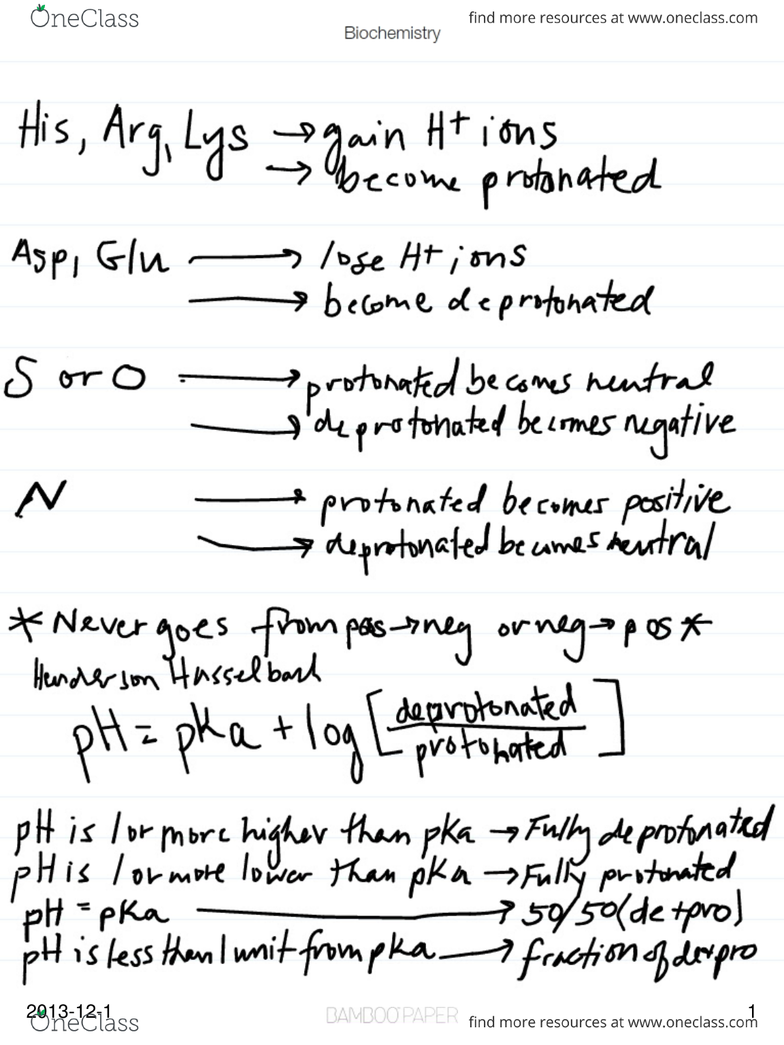 OneClass find more resources at www.oneclass.com
Biochemistry
His, Arg, Lys → gain H+ ions
→ become protonated
Asp, Glu → lose H+ ions
→ become deprotonated
S or O → protonated becomes neutral
→ deprotonated becomes negative
N → protonated becomes positive
→ deprotonated becomes neutral
* Never goes from pos → neg or neg → pos *
Henderson Hasselbach
pH = pKa + log [deprotonated / protonated]
pH is 1 or more higher than pKa → Fully deprotonated
pH is 1 or more lower than pKa → Fully protonated
pH = pKa → 50/50 (de + pro)
pH is less than 1 unit from pka → fraction of de+pro
2013-12-1 BAMBOO PAPER 1
OneClass find more resources at www.oneclass.com